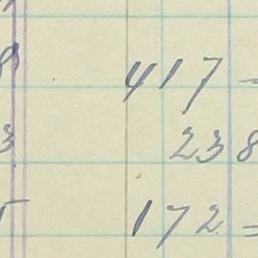 8 417 -
3 238
172 =